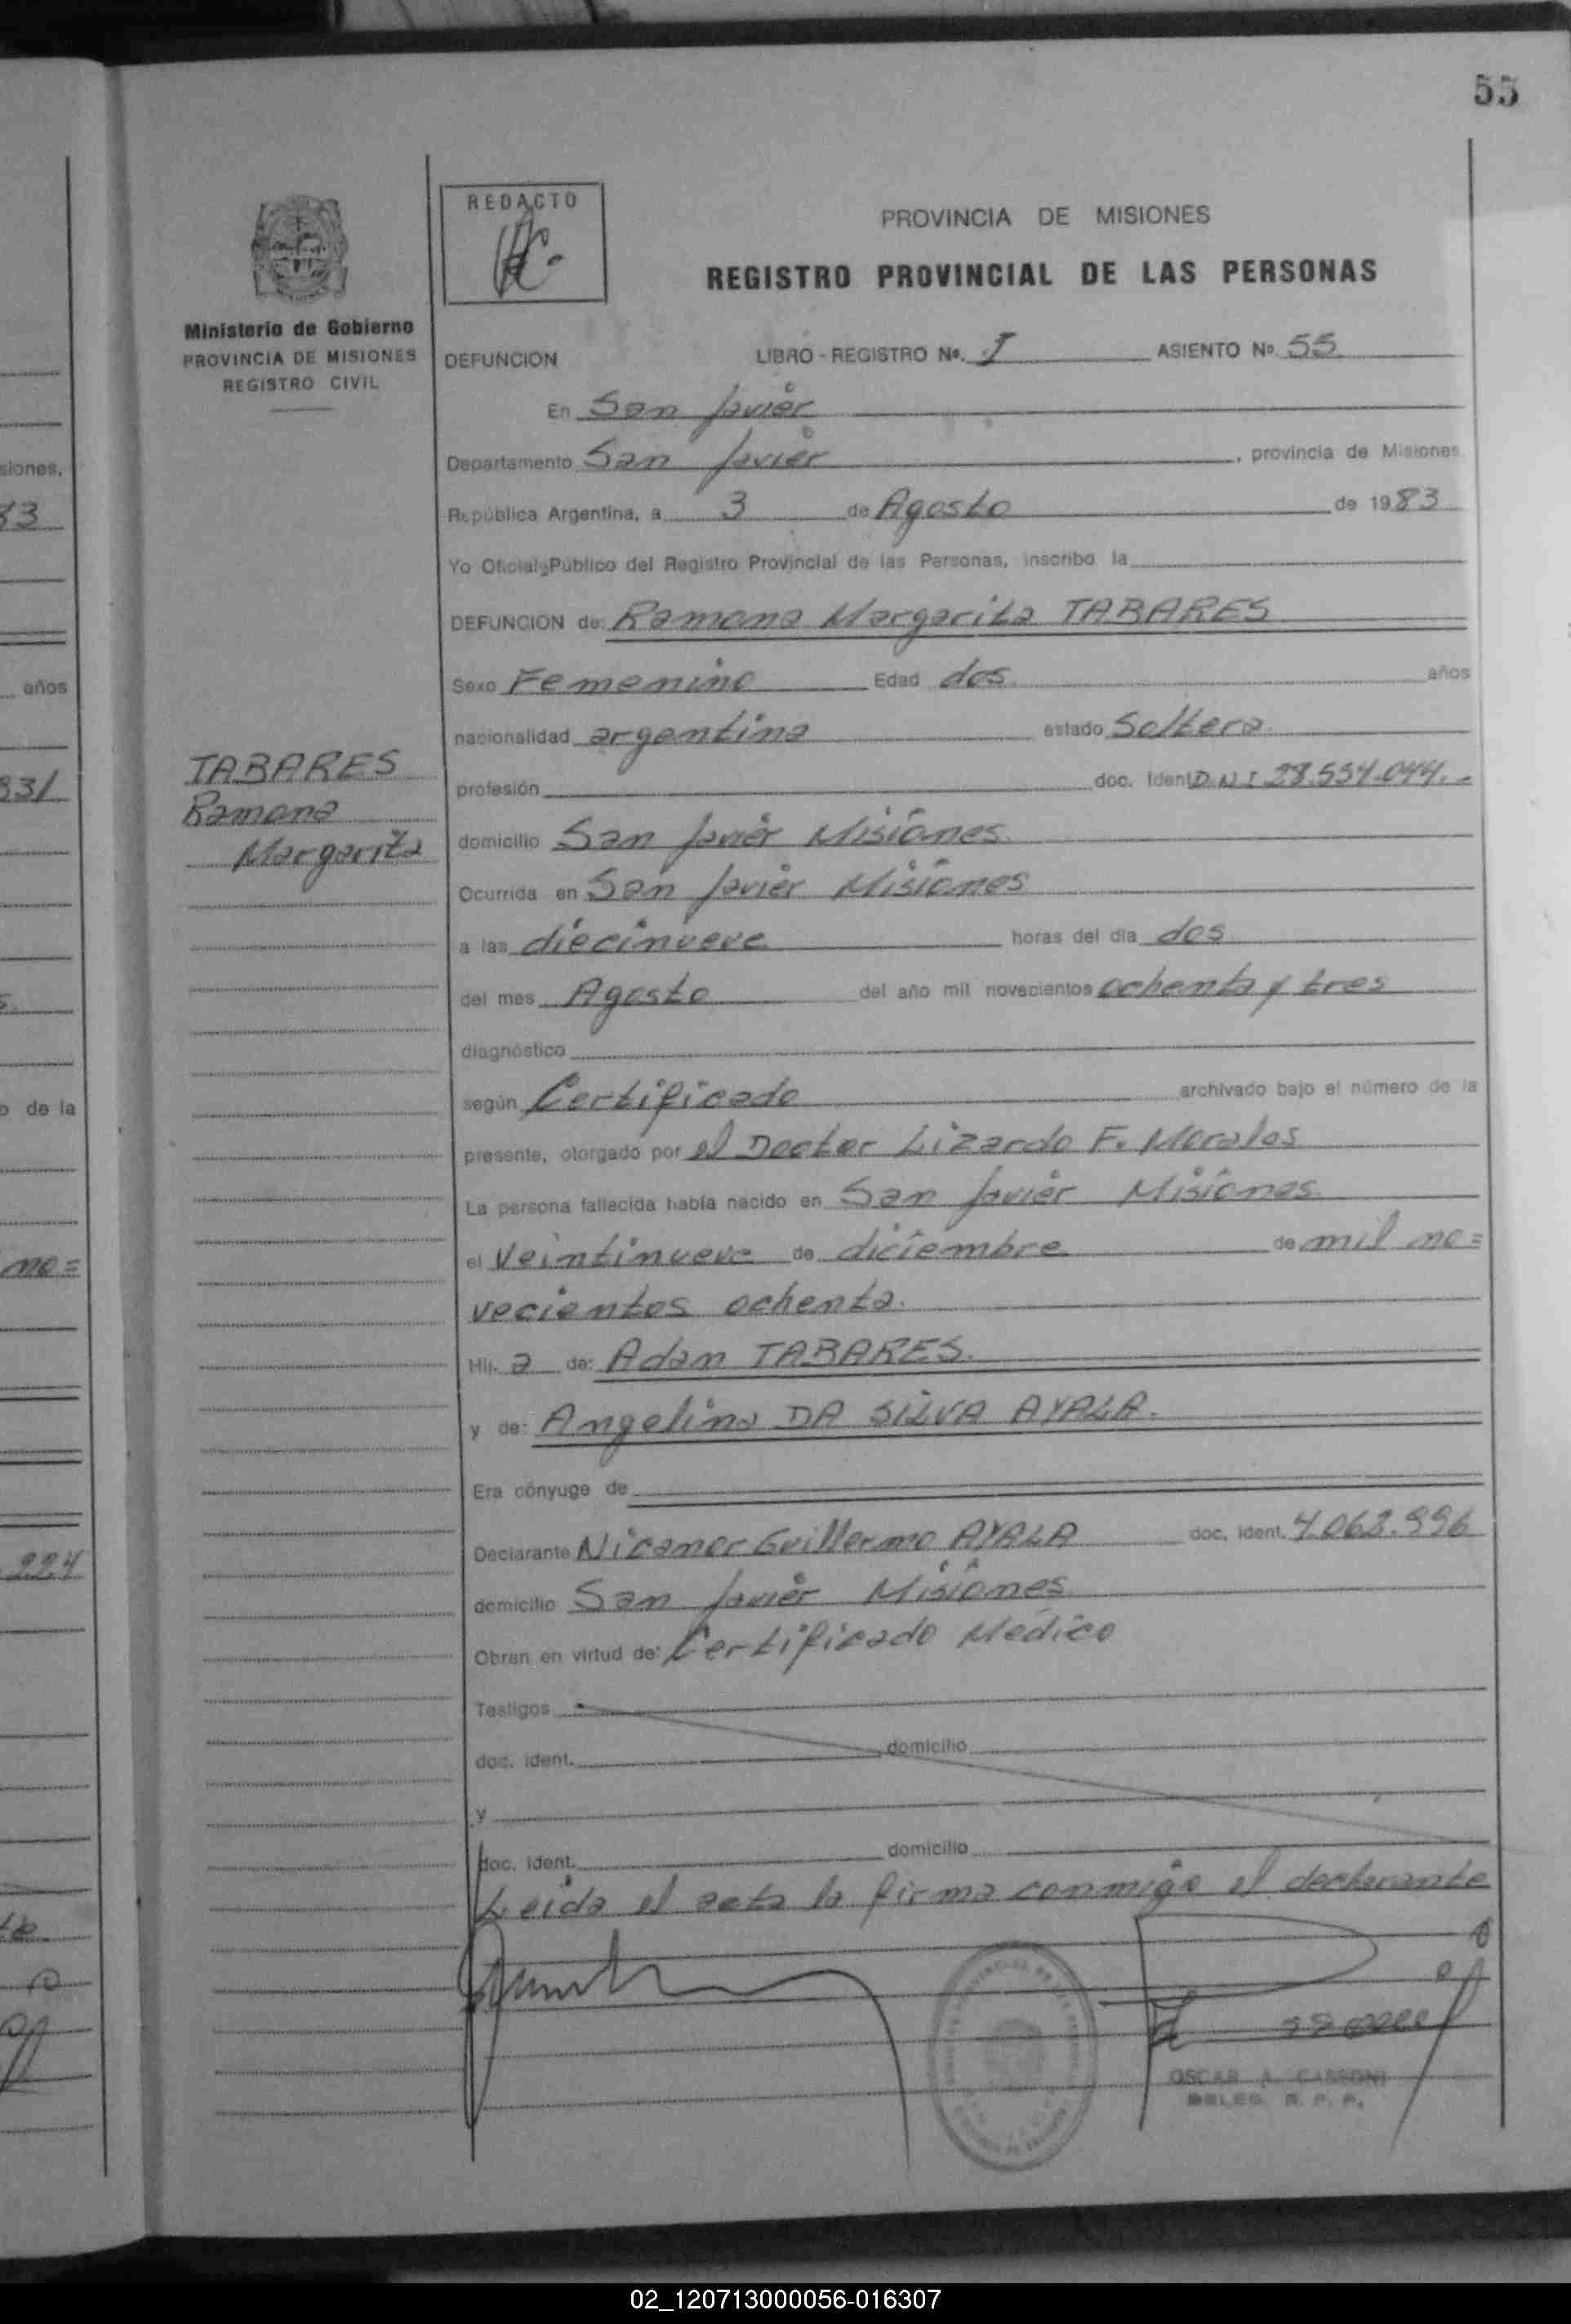 55
REDACTO
PROVINCIA DE MISIONES
REGISTRO PROVINCIAL DE LAS PERSONAS
Ministerio de Gobierno
PROVINCIA DE MISIONES
REGISTRO CIVIL
DEFUNCION LIBRO - REGISTRO Nº. I ASIENTO Nº 55
En San Javier
Departamento San Javier, provincia de Misiones.
República Argentina, a 3 de Agosto de 1983
Yo Oficial Público del Registro Provincial de las Personas, inscribo la
DEFUNCION de: Ramona Margarita TABARES
Sexo Femenino Edad dos años
nacionalidad argentina estado Soltera.
TABARES
Ramona
Margarita
profesión doc. Ident. D.N.I 28.534.044.-
domicilio San Javier Misiones
Ocurrida en San Javier Misiones
a las diecinueve horas del día dos
del mes Agosto del año mil novecientos ochenta y tres
diagnóstico
según Certificado archivado bajo el número de la
presente, otorgado por el Doctor Lizardo F. Morales
La persona fallecida había nacido en San Javier Misiones
el Veintinueve de diciembre de mil no=
vecientos ochenta.
Hij. a de: Adan TABARES.
y de: Angelina DA SILVA AYALA.
Era cónyuge de
Declarante Nicanor Guillermo AYALA doc. ident. 4.062.996
domicilio San Javier Misiones
Obran en virtud de: Certificado Médico
Testigos
doc. ident. domicilio
y
doc. ident. domicilio
Leida el acta la firma conmigo el declarante
OSCAR A. CASSONI
DELEG. R. P. P.
siones.
83
años
831
o de la
no=
224
02_120713000056-016307